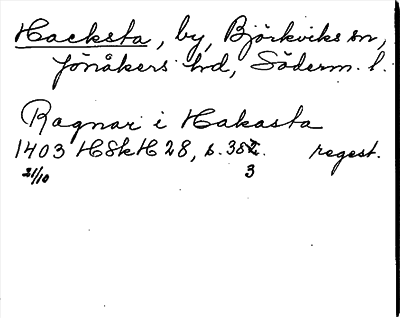 Hacksta, by, Björkviks sn,
Jönåkers hd, Söderm. l.
Ragnar i Hakasta
1403 HSkH 28, s. 38 regest.
21/10 3